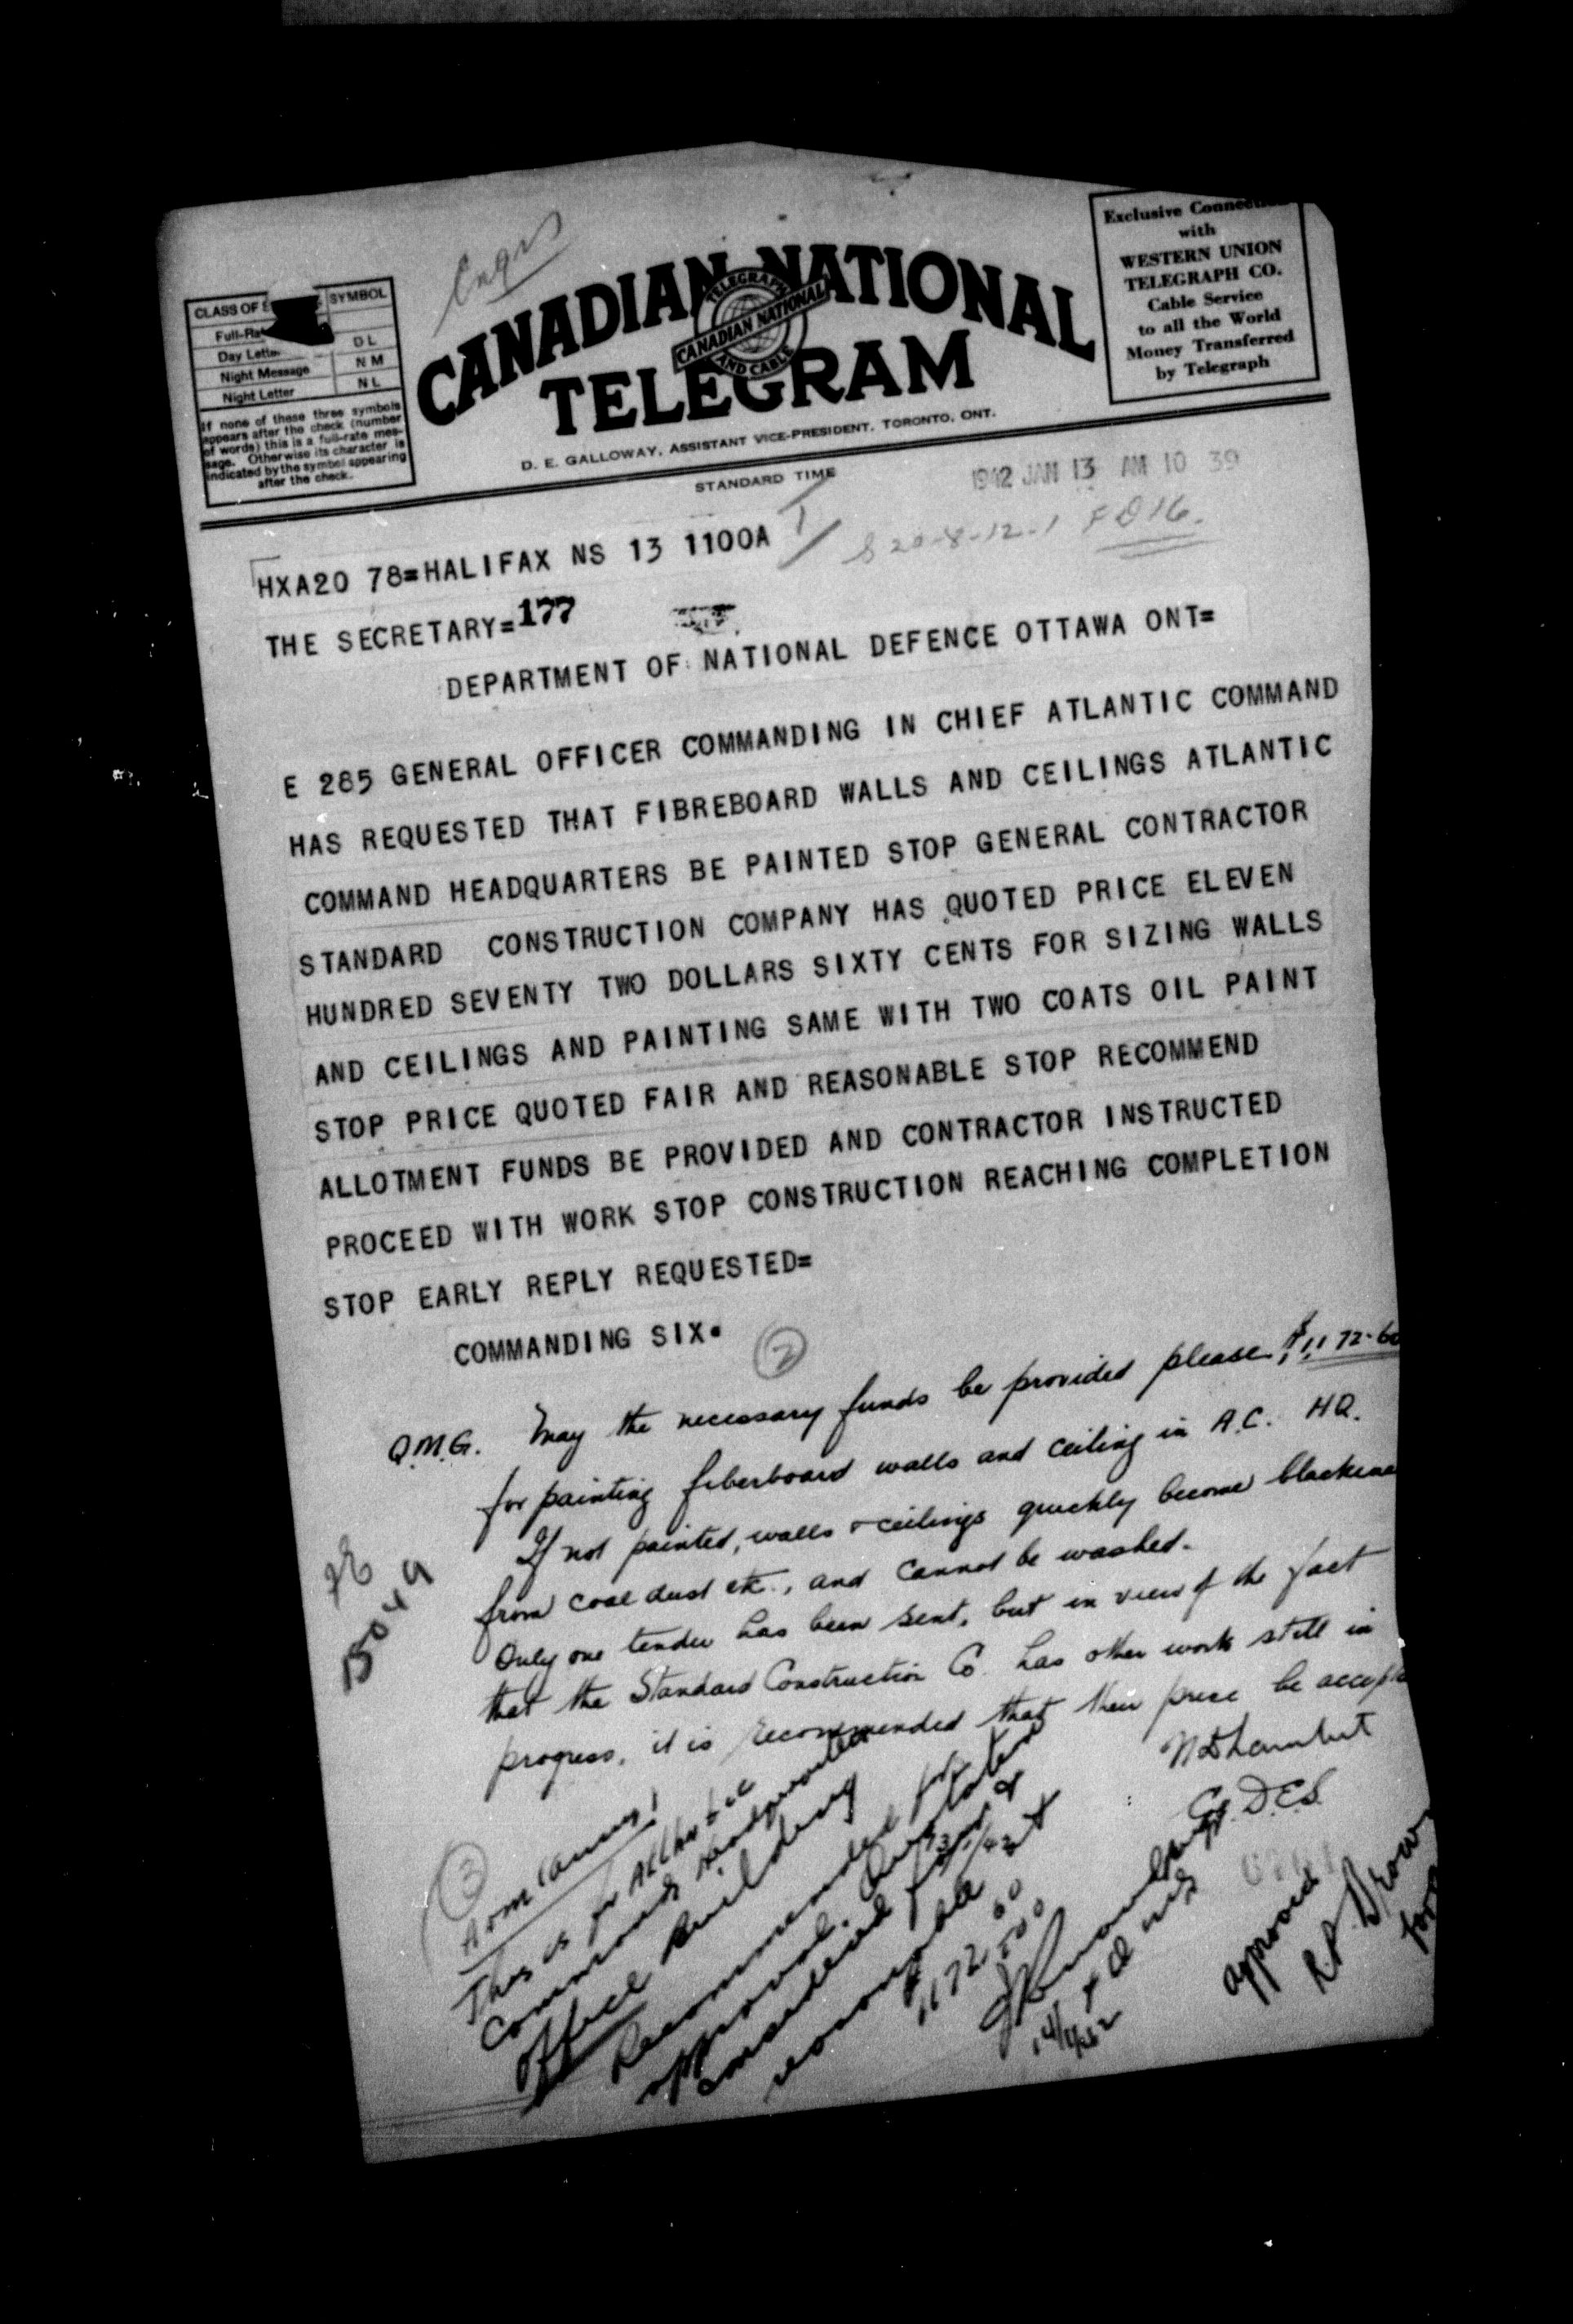 Engrs
CLASS OF SYMBOL
Full-Rate
Day Letter DL
Night Message NM
Night Letter NL
If none of these three symbols
appears after the check (number
of words) this is a full-rate mes-
sage. Otherwise its character is
indicated by the symbol appearing
after the check.
CANADIAN NATIONAL
TELEGRAPH
CANADIAN NATIONAL
AND CABLE
TELEGRAM
D. E. GALLOWAY, ASSISTANT VICE-PRESIDENT, TORONTO, ONT.
Exclusive Connection
with
WESTERN UNION
TELEGRAPH CO.
Cable Service
to all the World
Money Transferred
by Telegraph
STANDARD TIME
1942 JAN 13 AM 10 39
HXA20 78=HALIFAX NS 13 1100A
S 20-8-12-1 FD16.
THE SECRETARY=177
DEPARTMENT OF NATIONAL DEFENCE OTTAWA ONT=
E 285 GENERAL OFFICER COMMANDING IN CHIEF ATLANTIC COMMAND
HAS REQUESTED THAT FIBREBOARD WALLS AND CEILINGS ATLANTIC
COMMAND HEADQUARTERS BE PAINTED STOP GENERAL CONTRACTOR
STANDARD CONSTRUCTION COMPANY HAS QUOTED PRICE ELEVEN
HUNDRED SEVENTY TWO DOLLARS SIXTY CENTS FOR SIZING WALLS
AND CEILINGS AND PAINTING SAME WITH TWO COATS OIL PAINT
STOP PRICE QUOTED FAIR AND REASONABLE STOP RECOMMEND
ALLOTMENT FUNDS BE PROVIDED AND CONTRACTOR INSTRUCTED
PROCEED WITH WORK STOP CONSTRUCTION REACHING COMPLETION
STOP EARLY REPLY REQUESTED=
COMMANDING SIX.
2
Q.M.G. May the necessary funds be provided please, $1172.60
for painting fiberboard walls and ceiling in A.C. HQ.
If not painted, walls & ceilings quickly become blackened
from coal dust etc., and cannot be washed.
Only one tender has been sent, but in view of the fact
that the Standard Construction Co. has other work still in
progress, it is recommended that their price be accepted
Col. D.E.S.
13/1/42
3
This is for Atlantic
Command Headquarters
Office Building
Recommended for
approval. Quotation
considered fair &
reasonable
1172.60
14/1/42
approved